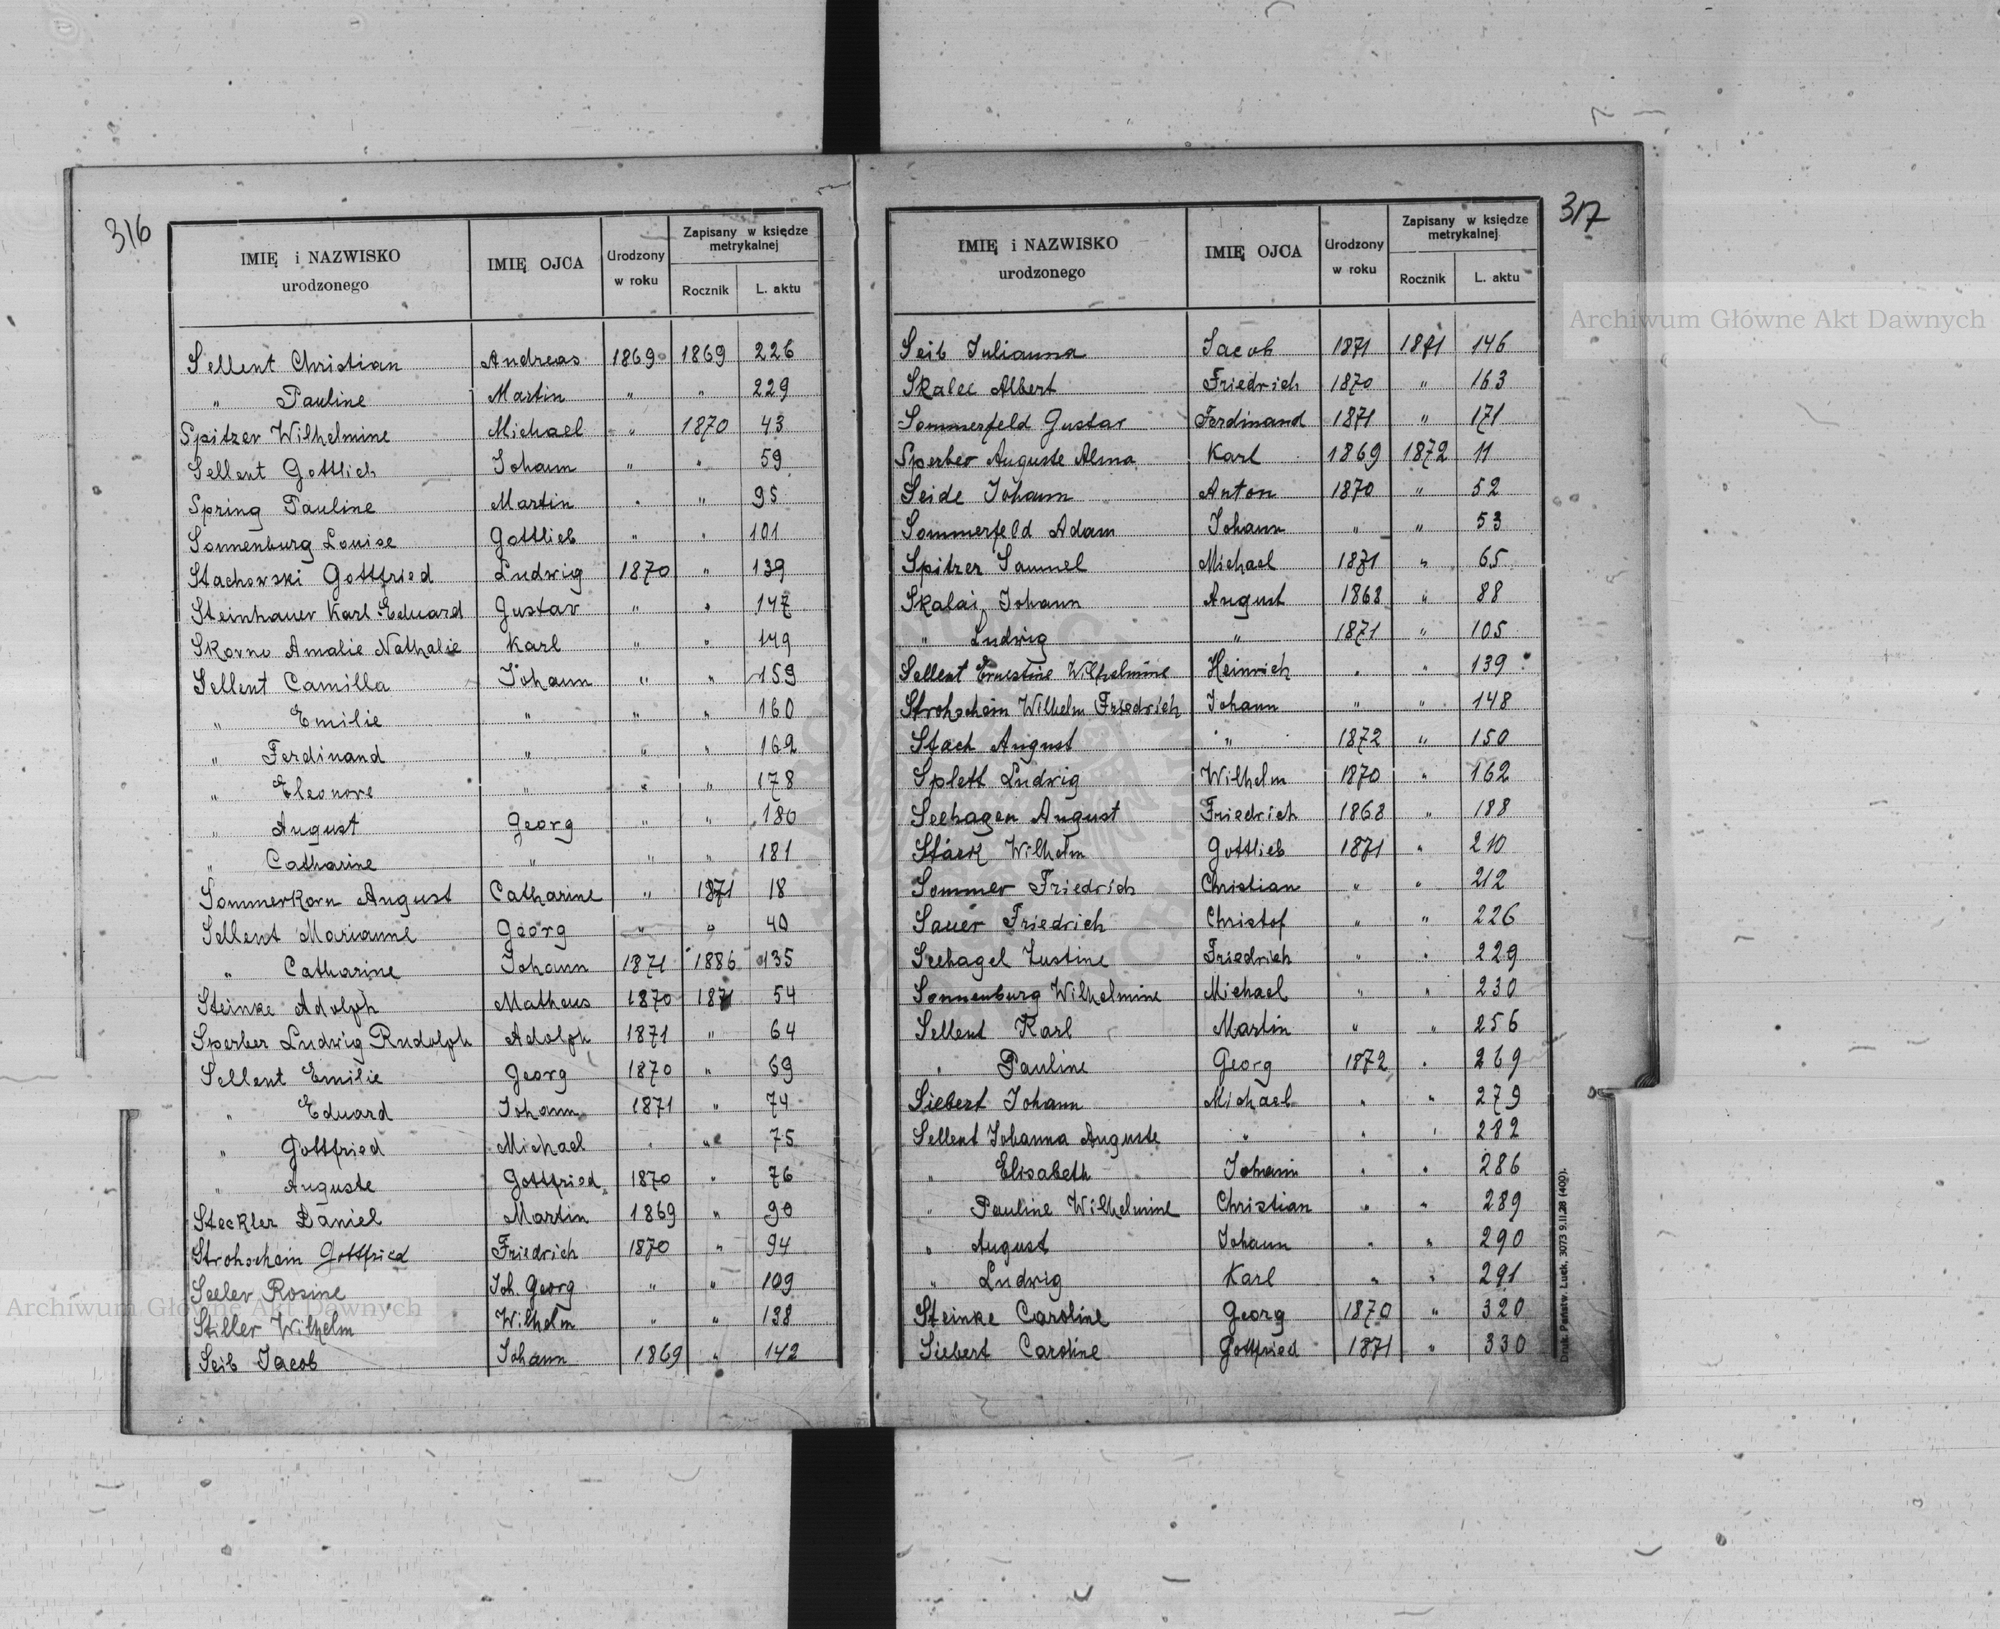 316
IMIĘ i NAZWISKO urodzonego | IMIĘ OJCA | Urodzony w roku | Zapisany w księdze metrykalnej
Rocznik | L. aktu
Sellent Christian | Andreas | 1869 | 1869 | 226
" Pauline | Martin | " | " | 229
Spitzer Wilhelmine | Michael | " | 1870 | 43
Sellent Gottlieb | Johann | " | " | 59
Spring Pauline | Martin | " | " | 95
Sonnenburg Louise | Gottlieb | " | " | 101
Stachowski Gottfried | Ludwig | 1870 | " | 139
Steinhauer Karl Eduard | Gustav | " | " | 147
Skorno Amalie Nathalie | Karl | " | " | 149
Sellent Camilla | Johann | " | " | 159
" Emilie | " | " | " | 160
" Ferdinand | " | " | " | 162
" Eleonore | " | " | " | 178
" August | Georg | " | " | 180
" Catharine | " | " | " | 181
Sommerkorn August | Catharine | " | 1871 | 18
Sellent Marianne | Georg | " | " | 40
" Catharine | Johann | 1871 | 1886 | 135
Steinke Adolph | Matheus | 1870 | 1871 | 54
Sperber Ludwig Rudolph | Adolph | 1871 | " | 64
Sellent Emilie | Georg | 1870 | " | 69
" Eduard | Johann | 1871 | " | 74
" Gottfried | Michael | " | " | 75
" Auguste | Gottfried | 1870 | " | 76
Steckler Daniel | Martin | 1869 | " | 90
Strohschein Gottfried | Friedrich | 1870 | " | 94
Seeler Rosine | Joh. Georg | " | " | 109
Stiller Wilhelm | Wilhelm | " | " | 138
Seib Jacob | Johann | 1869 | " | 142
317
IMIĘ i NAZWISKO urodzonego | IMIĘ OJCA | Urodzony w roku | Zapisany w księdze metrykalnej
Rocznik | L. aktu
Seib Julianna | Jacob | 1871 | 1871 | 146
Skalec Albert | Friedrich | 1870 | " | 163
Sommerfeld Gustav | Ferdinand | 1871 | " | 171
Sperber Auguste Alma | Karl | 1869 | 1872 | 11
Seide Johann | Anton | 1870 | " | 52
Sommerfeld Adam | Johann | " | " | 53
Spitzer Samuel | Michael | 1871 | " | 65
Skalai Johann | August | 1868 | " | 88
" Ludwig | " | 1871 | " | 105
Sellent Ernestine Wilhelmine | Heinrich | " | " | 139
Strohschein Wilhelm Friedrich | Johann | " | " | 148
Stach August | " | 1872 | " | 150
Splett Ludwig | Wilhelm | 1870 | " | 162
Seehagen August | Friedrich | 1868 | " | 188
Stärk Wilhelm | Gottlieb | 1871 | " | 210
Sommer Friedrich | Christian | " | " | 212
Sauer Friedrich | Christof | " | " | 226
Seehagel Justine | Friedrich | " | " | 229
Sonnenburg Wilhelmine | Michael | " | " | 230
Sellent Karl | Martin | " | " | 256
" Pauline | Georg | 1872 | " | 269
Siebert Johann | Michael | " | " | 279
Sellent Johanna Auguste | " | " | " | 282
" Elisabeth | Johann | " | " | 286
" Pauline Wilhelmine | Christian | " | " | 289
" August | Johann | " | " | 290
" Ludwig | Karl | " | " | 291
Steinke Caroline | Georg | 1870 | " | 320
Siebert Caroline | Gottfried | 1871 | " | 330
Druk. Państw. Łuck. 3073 9.II.28 (400).
Archiwum Główne Akt Dawnych
Archiwum Główne Akt Dawnych